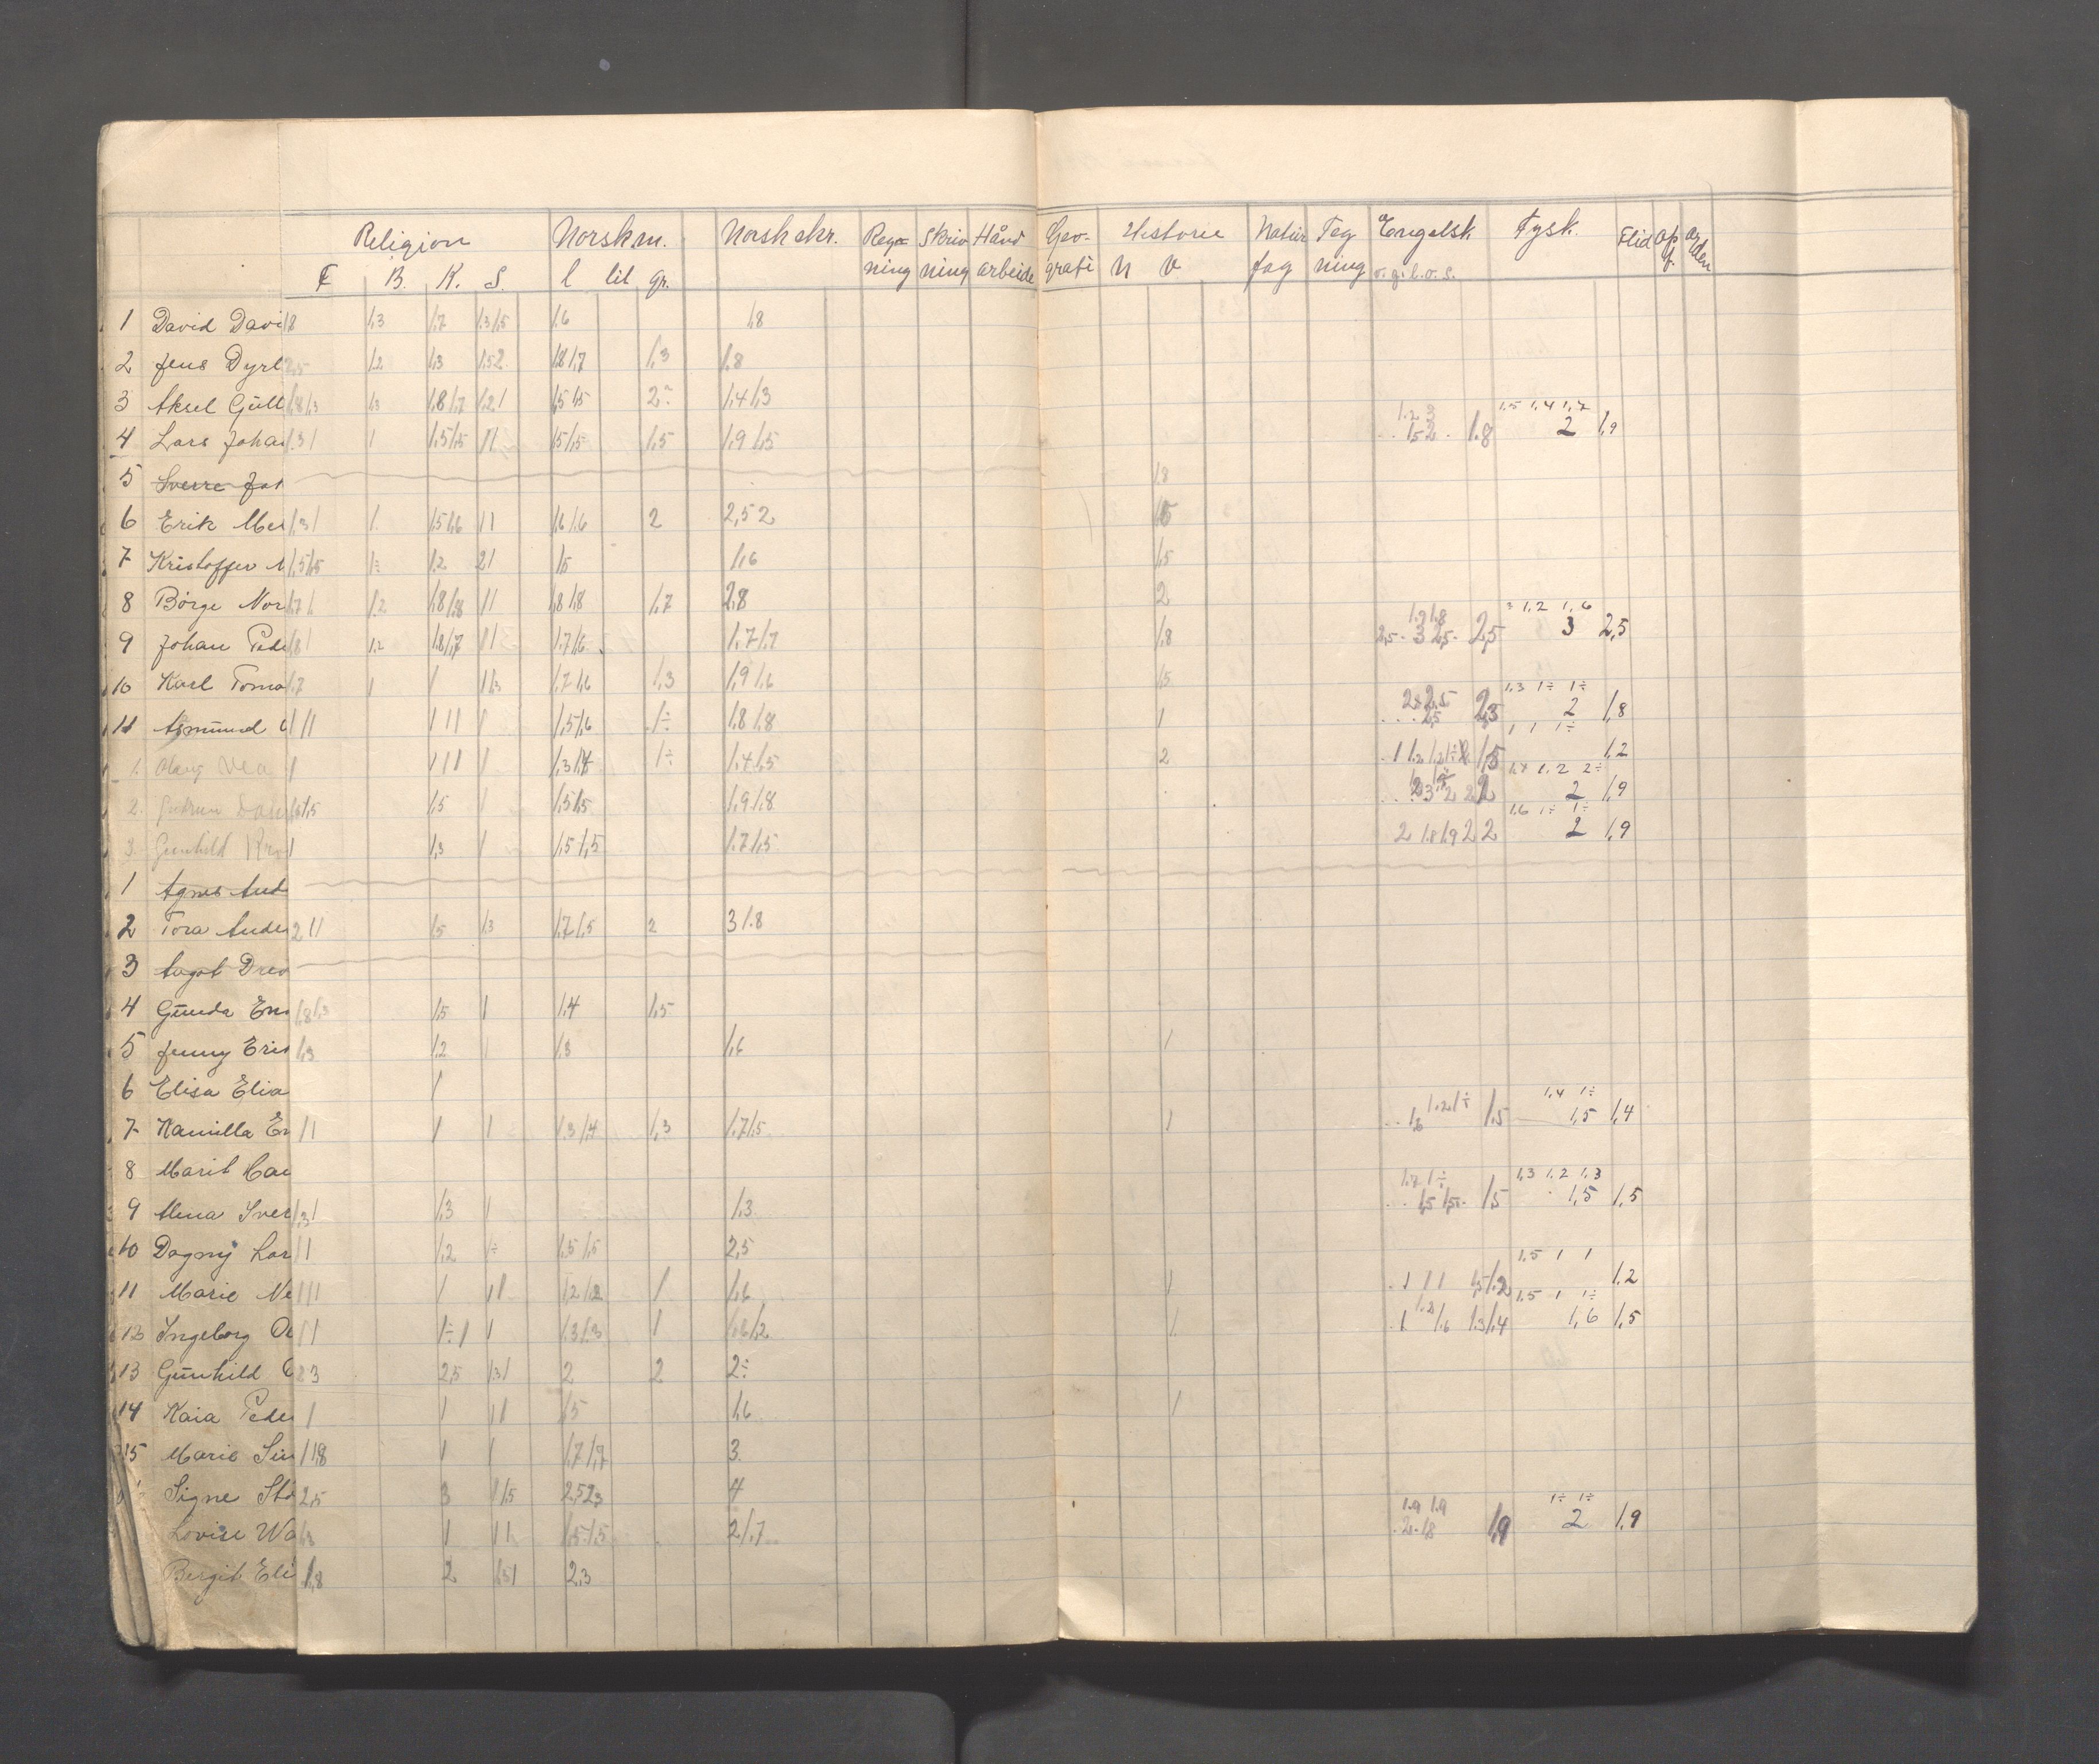 Religion Norsk m. Norsk skr. Regn- Skriv Hånd Geo- Historie Natur Teg Engelsk Tysk. Flid Opf. Orden
F B. K. S. l lit gr. ning ning arbeide grafi N V. fag ning v. g. l. o. s.
1 David Davi 1,8 1,3 1,7 1,3/1,5 1,6 1,8
2 Jens Dyrl 2,5 1,2 1,3 1,5 2 1,8 1,7 1,3 1,8
3 Aksel Gull 1,8 1,3 1,3 1,8/1,7 1,2 1 1,5 1,5 2 1,4 1,3
1,5 1,4 1,7
4 Lars Johan 1,3 1 1 1,5/1,5 1 1 1,5/1,5 1,5 1,9 1,5 1,8 2 1,9
5 Sverre Joh 1,8
6 Erik Mei 1,3 1 1 1,5 1,6 1 1 1,6 1,6 2 2,5 2
7 Kristoffer 1,5 1,5 1÷ 1,2 2 1 1,5 1,6 1,5
8 Børge Nor 1,7 1 1,2 1,8 1 1 1,8 1,8 1,7 2,8 2
1,2 1,6
9 Johan Pede 1,8 1 1,2 1,8/1,7 1 1 1,7/1,6 1,7/1,7 1,8 2,5 3 2,5 2,5 3 2,5
10 Karl Toma 1,7 1 1 1 1,3 1,7 1,6 1,3 1,9 1,6 1,5
1,3 1÷ 1÷
11 Asmund 1 1 1 1 1 1 1 1,5/1,6 1÷ 1,8 1,8 1 2,5 2,3 2 1,8
1 1 1÷
1. Olaug Vea 1 1 1 1 1 1,3 1÷ 1,4/1,5 2 1,5 1,2
1,2 2÷
2. Gudrun 1,5 1 1,5 1,5 1,9 1,8 2 1,9
1,6 1÷ 1÷
3. Gunhild 1 1,3 1 1,5 1,5 1,7 1,5 2 1,8 1,9 2 2 2 1,9
1 Agnes And
2 Tora Ande 2 1 1 1,5 1,3 1,7 1,5 2 3 1,8
3 Aagot Drev
4 Gunda En 1,8 1,3 1,5 1 1,4 1,5
5 Jenny Erik 1,3 1,2 1 1,3 1,6 1
6 Elisa Elia 1
1,4 1÷
7 Kamilla Er 1 1 1 1 1,3 1,4 1,3 1,7 1,5 1 1,5 1,5 1,4
8 Marit Han
1,3 1,2 1,3
9 Mina Sver 1,3 1 1,3 1 1,3 1,5 1,5 1,5 1,5 1,5
10 Dagny Lar 1 1 1,2 1÷ 1,5 1,5 2,5
1,5 1 1
11 Marie Ne 1 1 1 1 1 1 1,2 1 1,6 1 1 1 1 1,5 1,2 1,2
1,5 1 1÷
12 Ingeborg 1 1 1÷1 1 1,3 1,3 1 1,6 1,2 1 1 1,6 1,3 1,4 1,6 1,5
13 Gunhild 2 3 2,5 1,3 1 2 2 2÷
14 Kaia Pede 1 1 1 1 1,5 1,6 1
15 Marie Sim 1 1,8 1 1 1,7 3
Signe Sto 2,5 3 1 1,5 2,5 2,3 4
1,9 1,9 1÷ 1÷
Lovise Wa 1,3 1 1 1 1,5 1,5 2 1,7 2 1,8 1,9 2 1,9
Bergit Eli 1,8 2 1,5 1 2,3